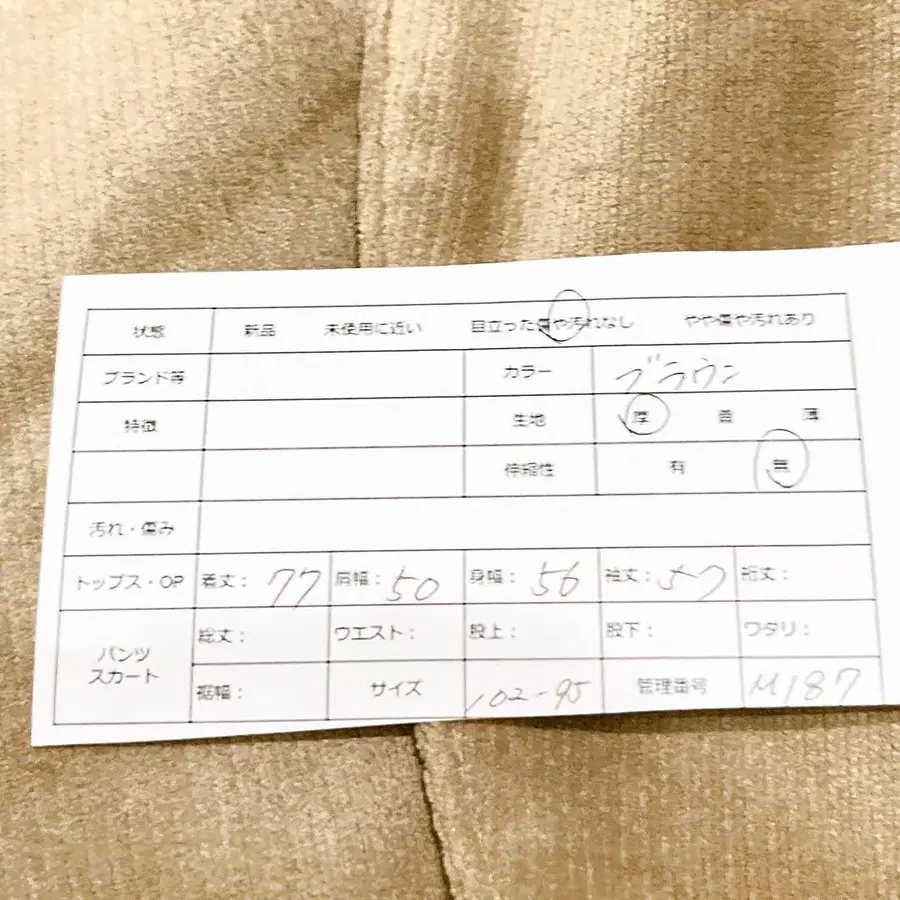 状態 新品 未使用に近い 目立った傷や汚れなし やや傷や汚れあり
ブランド等 カラー ブラウン
特徴 生地 厚 普 薄
伸縮性 有 無
汚れ・傷み
トップス・OP 着丈： 77 肩幅： 50 身幅： 56 袖丈： 57 裄丈：
パンツ スカート 総丈： ウエスト： 股上： 股下： ワタリ：
裾幅： サイズ 102-95 管理番号 M187